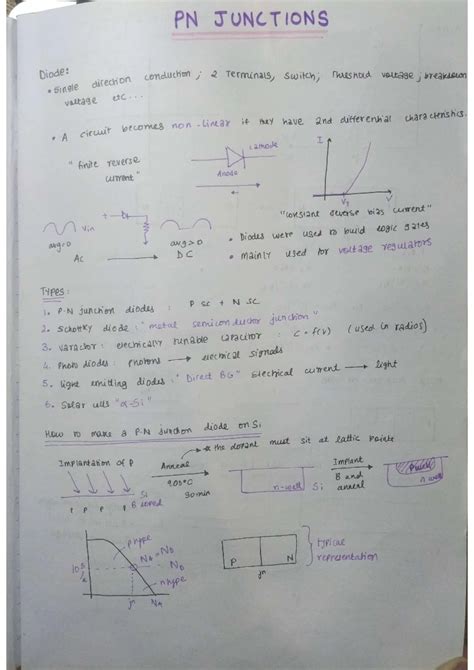 PN JUNCTIONS
Diode:
• Single direction conduction; 2 Terminals, switch, Threshold voltage, breakdown
voltage etc...
• A circuit becomes non-linear if they have 2nd differential characteristics.
"finite reverse
current"
Cathode
Anode
I
Vγ
V
"constant reverse bias current"
Vin
avg=0
avg>0
AC
DC
• Diodes were used to build logic gates
• mainly used for voltage regulators
Types:
1. P-N junction diodes : P SC + N SC
2. Schottky diode : "metal semiconductor junction"
3. Varactor : electrically tunable capacitor : C = f(V) (used in radios)
4. Photo diodes : photons → electrical signals
5. Light emitting diodes : "Direct BG" Electrical current → light
6. Solar cells "α-Si"
How to make a P-N junction diode on Si
* the dopant must sit at lattic points
Implantation of P
Anneal
900°C
30min
Si
B doped
P P P P
n-well
Si
Implant
B and
anneal
P well
n well
p type
n type
jn
P
N
jn
typical
representation